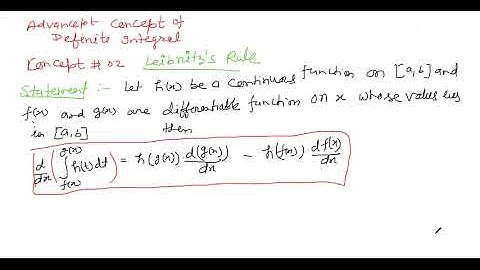 Advancept Concept of
Definite Integral
Concept # 02 Leibnitz's Rule
Statement :- Let h(x) be a Continuous function on [a,b] and
f(x) and g(x) are differentiable function on x whose value lies
in [a,b] then
d/dx (∫_{f(x)}^{g(x)} h(t) dt) = h(g(x)) d(g(x))/dx - h(f(x)) d f(x)/dx